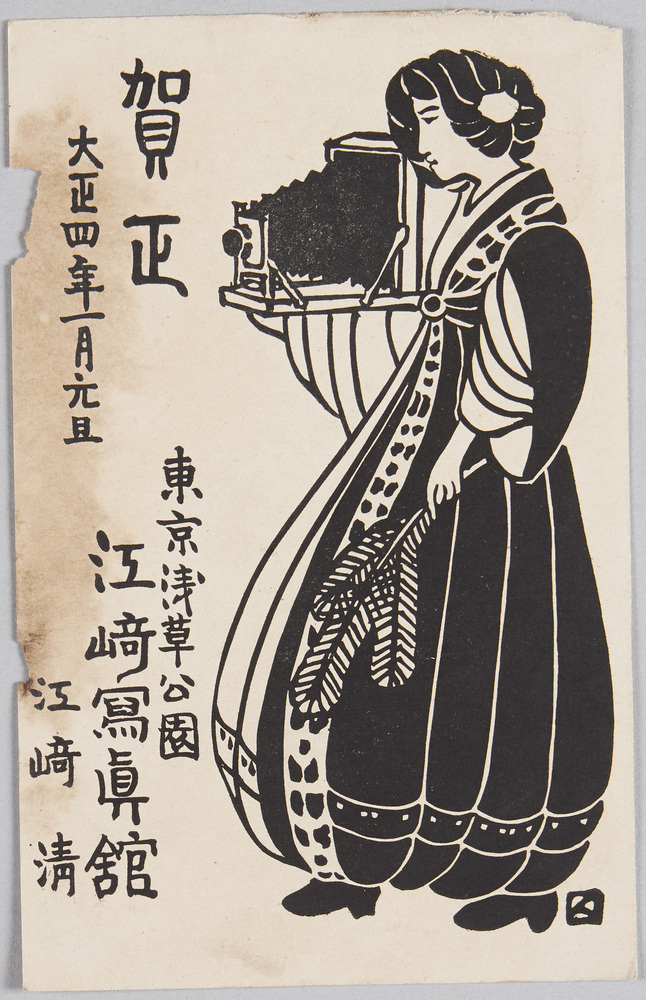 賀正
大正四年一月元旦
東京浅草公園
江﨑寫眞舘
江﨑清